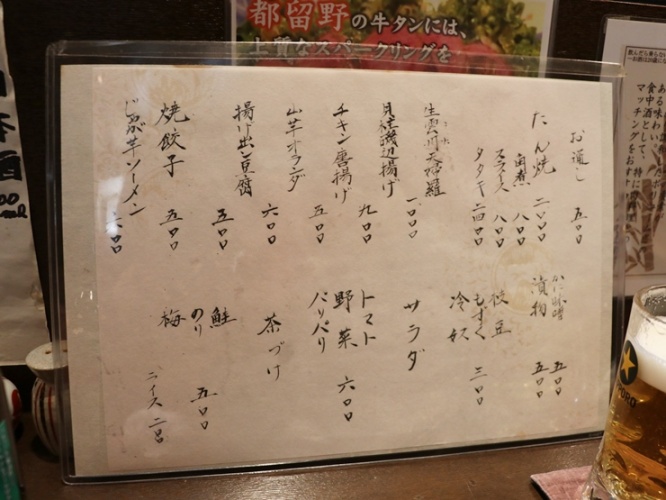 都留野の牛タンには、
上質なスパークリングを
お通し 五〇〇
たん焼 二〇〇〇
角煮 八〇〇
スライス 八〇〇
タタキ 二四〇〇
天婦羅 一〇〇〇
磯辺揚げ 九〇〇
チキン唐揚げ 五〇〇
山芋オランダ 六〇〇
揚げ出し豆腐 五〇〇
焼餃子 五〇〇
じゃが芋ソーメン 六〇〇
かに味噌 五〇〇
漬物 五〇〇
枝豆
もずく 三〇〇
冷奴
サラダ
トマト
野菜 六〇〇
パリパリ
茶づけ
鮭
のり 五〇〇
梅
ライス 二〇〇
食中酒として、
マッチングを